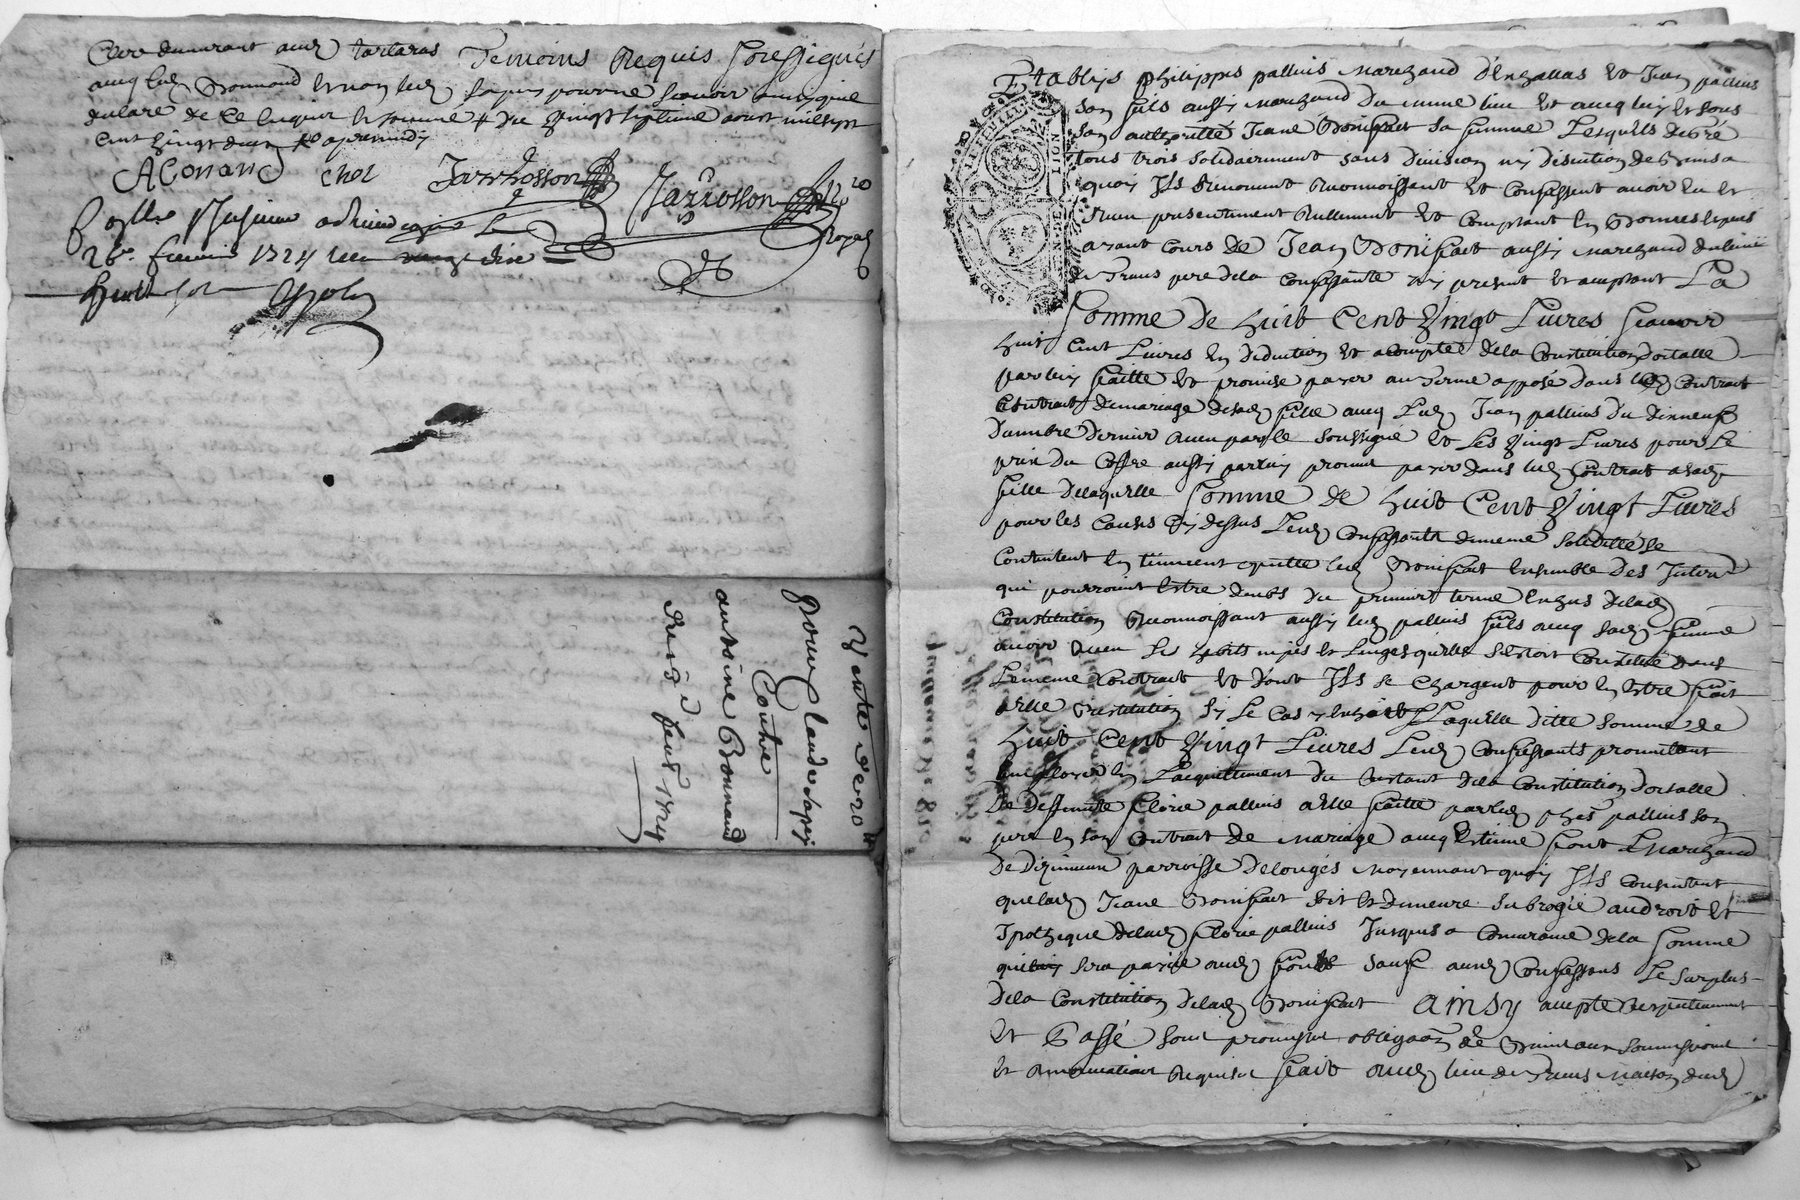 Clerc demurant aud Tartaras Temoins Requis Soussignés
avecq led Bonnand et non led Sapin pour ne scavoir ainsy quil
declaré de ce enquis et sommé # du vingt septieme aoust mil sept
cent vingt deux
AConand chol Jarrosson Jarrosson
royal
26e feuvrier 1724
huit sols
Vente de 20 lt
Pour Claude Sapin
Contre
antoine Bonnand
du 13 feur 1724
GENERALITE DE LION
Establys philippes palluis Marchand d'Enzallas et Jean palluis
son fils aussi Marchand du meme lieu et avecq luy et sous
son authoritté Jeane Bonifait sa femme Lesquels de gré
tous trois solidairement sans division ny discution de biens a
quoy Ils renoncent Reconnoissent et Confessent avoir eu et
receu presentement Reellement et Comptant en Bonnes especes
ayant cours de Jean Bonifait aussi Marchand
de Trans pere dela Confessante icy present et acceptant La
Somme De huit Cent Vingt Livres scavoir
huit cent Livres en Deduction et acompte dela Constitution dotalle
par luy faitte et promise payer au Terme apposé dans led Contrat
Contrat de mariage desad fille avecq Led Jean palluis du
Dernier Receu par le soussigné et Les Vingt Livres pour Le
prix du Coffre aussi par luy promit payer dans led Contrat a sad
fille De laquelle Somme De huit Cent Vingt Livres
pour les Causes cy dessus Lesd Confessants de meme solidittté se
Contentent en tiennent quitte led Bonifait ensemble Des Interet
qui pourroint Estre deubs du premier terme echus delad
Constitution Reconnoissant aussi led palluis fils avecq sad femme
avoir receu Les habits nipes et Linges quelle sestoit Constitué dans
Le meme Contrat et dont Ils se Chargent pour en Estre fait
a elle restitution sy Le Cas y echoit Laquelle ditte somme de
Huit Cent Vingt Livres Lesd Confessants promettent
employer en Lacquittement du restant dela Constitution Dotalle
De Deffunte Clorie palluis a elle faitte par led phes palluis son
pere en son Contrat de Mariage avecq Estienne font Marchand
De Dizimieux parroisse De Longes moyennant quoy Ils consentent
que lad Jeane Bonifait soit et Demeure subrogée au droit et
Ipotheque delad Clorie palluis Jusques a Concurance dela somme
qui sera payée aud font sauf ausd Confessans Le surplus
dela Constitution delad Bonifait ainsy accepté respectivement
et Passé sous promesses obligaõn de Biens aux soumissions
et Renonciations Requises fait aud lieu de Trans Maison dud